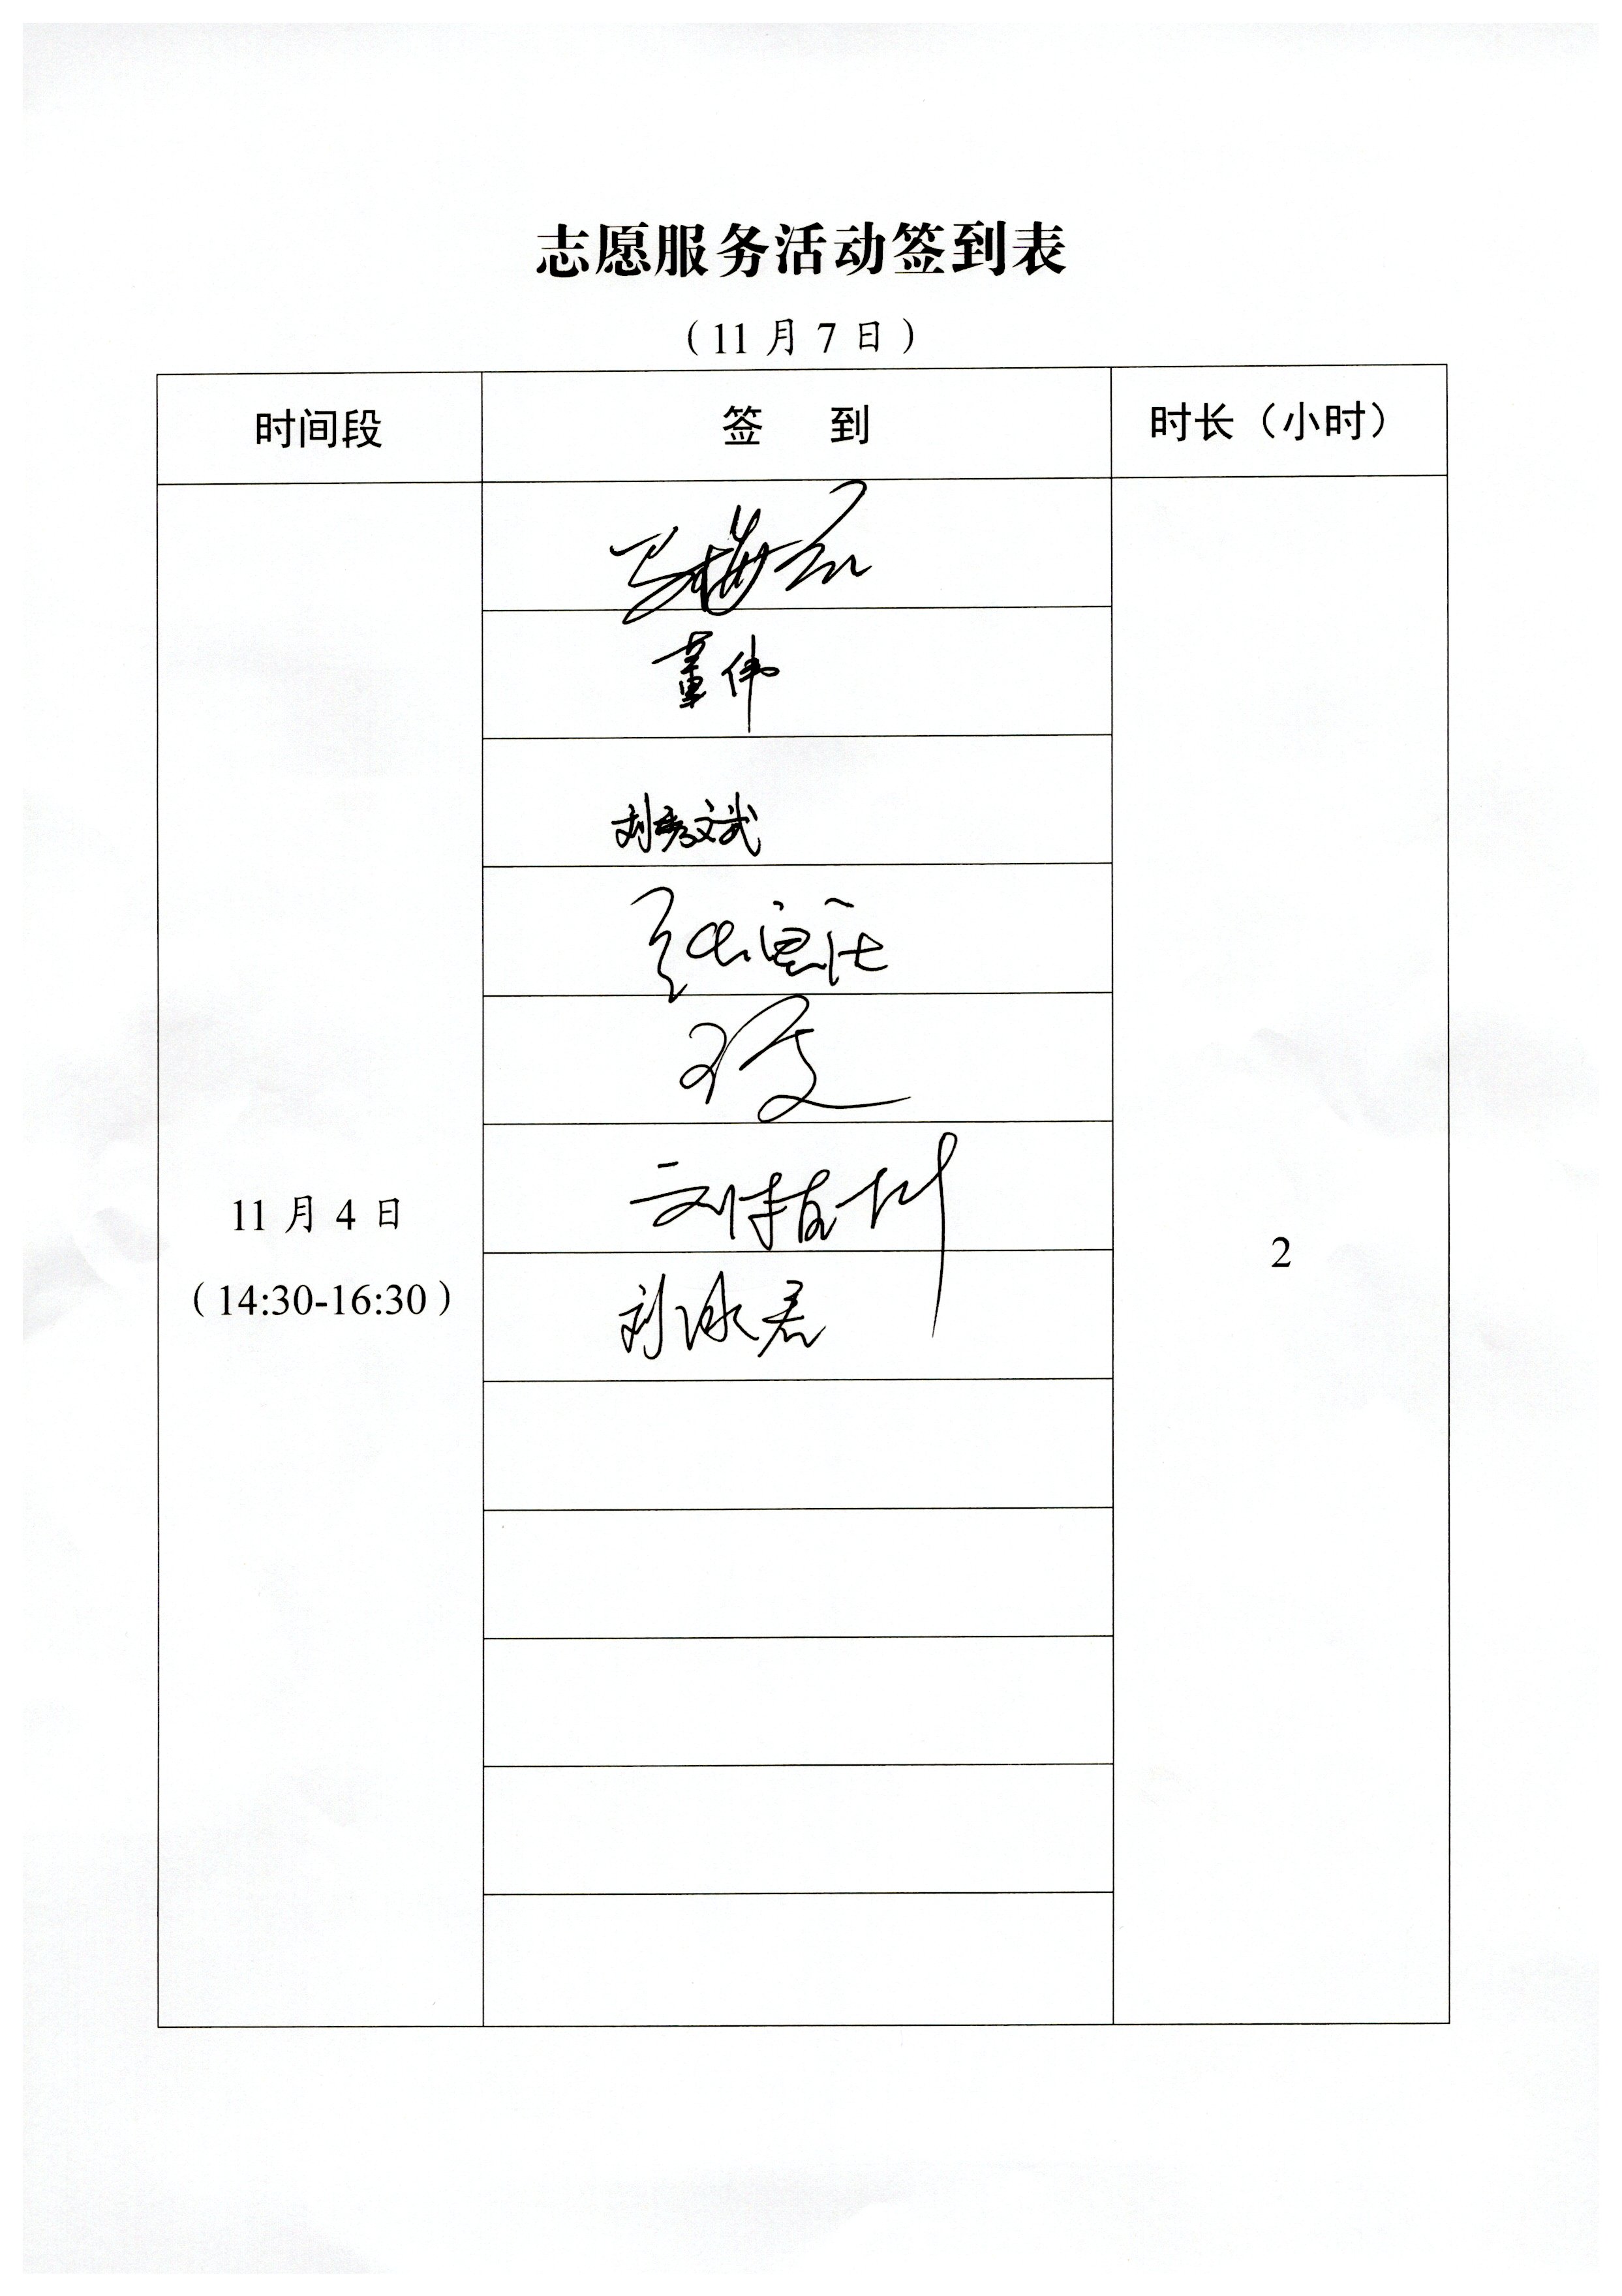 志愿服务活动签到表
（11 月 7 日）
时间段 签 到 时长（小时）
董伟
刘彦文斌
刘泳君
11 月 4 日
（14:30-16:30）
2